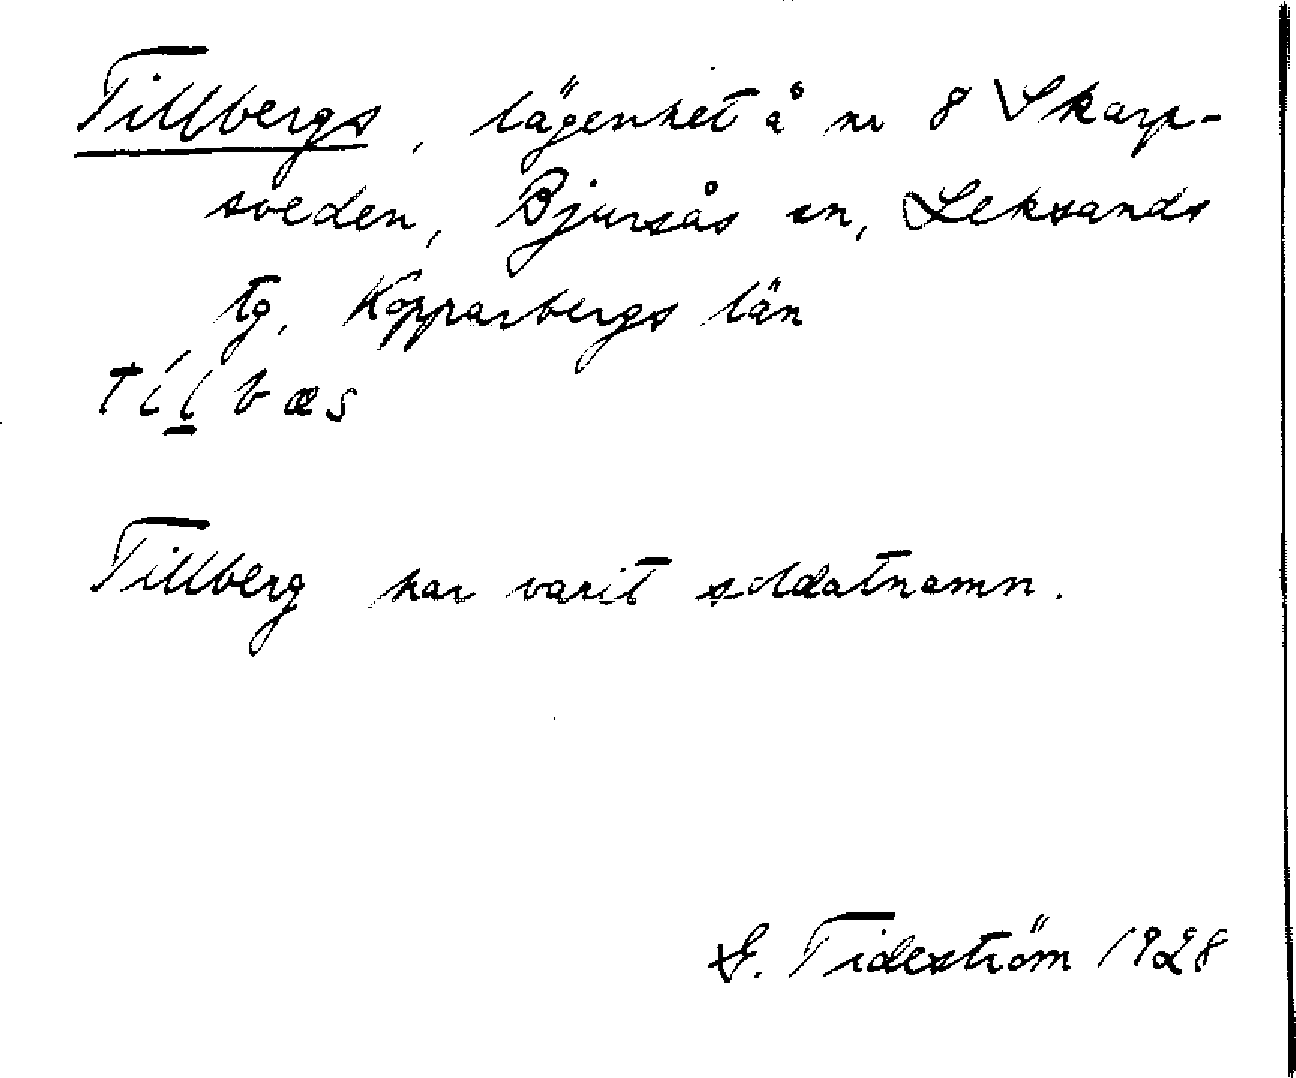 Tillbergs, lägenhet å nr 8 Skarp-
sveden, Bjursås sn, Leksands
tg, Kopparbergs län
Tillberg har varit soldatnamn.
G. Tideström 1928